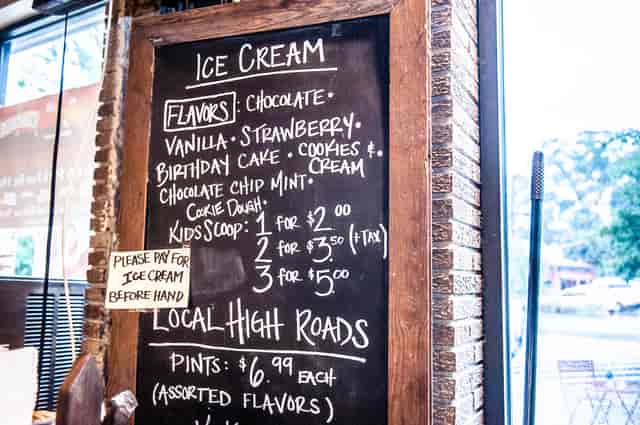 ICE CREAM
FLAVORS: CHOCOLATE •
VANILLA • STRAWBERRY •
BIRTHDAY CAKE • COOKIES &
CREAM
CHOCOLATE CHIP MINT •
COOKIE DOUGH •
KIDS SCOOP: 1 FOR $2.00
2 FOR $3.50 (+TAX)
3 FOR $5.00
PLEASE PAY FOR
ICE CREAM
BEFORE HAND
LOCAL HIGH ROADS
PINTS: $6.99 EACH
(ASSORTED FLAVORS)